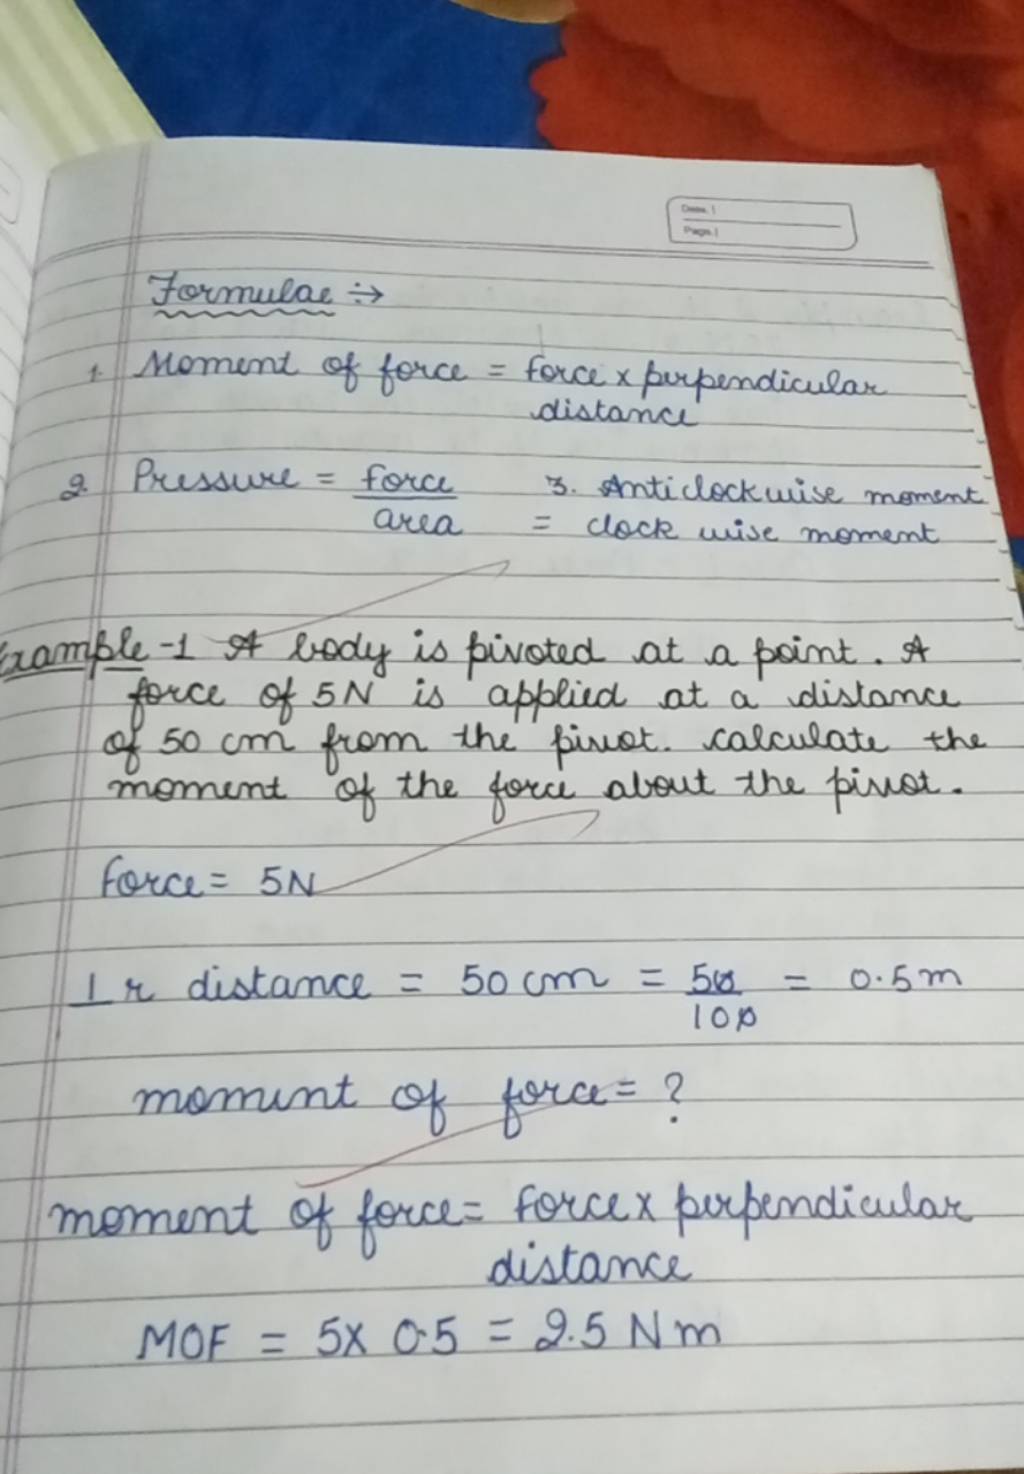 Date. |
Page. |
Formulae ÷→
1. Moment of force = force x perpendicular
distance
2. Pressure = force/area
3. Anticlockwise moment
= clock wise moment
Example-1 A body is pivoted at a point. A
force of 5N is applied at a distance
of 50 cm from the pivot. calculate the
moment of the force about the pivot.
force = 5N
⊥r distance = 50 cm = 50/100 = 0.5m
moment of force = ?
moment of force = force x perpendicular
distance
MOF = 5x 0.5 = 2.5 Nm